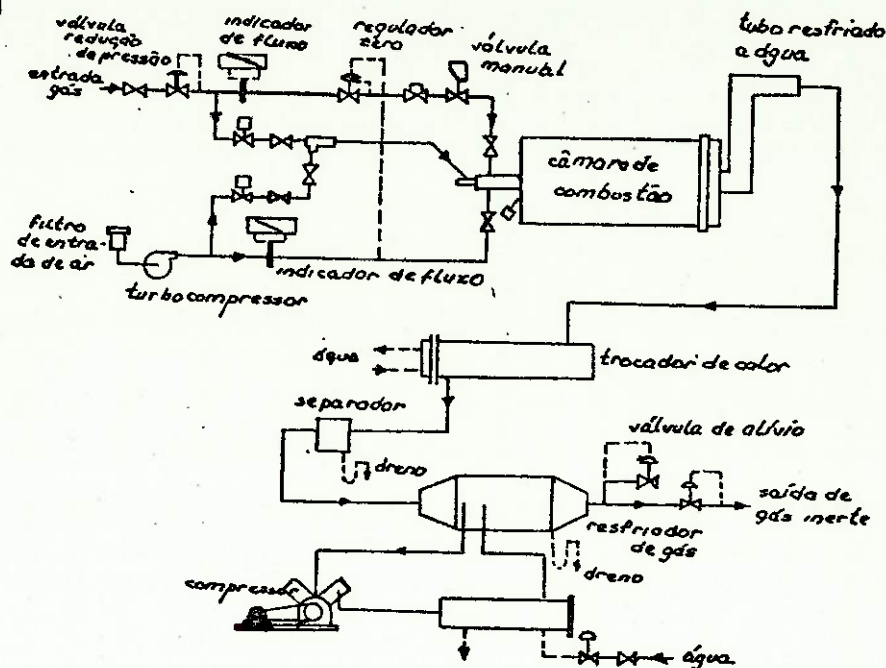 válvula
redução
de pressão
indicador
de fluxo
regulador
zero
válvula
manual
tubo resfriado
a água
entrada
gás
câmara de
combustão
filtro
de entra-
da de air
indicador de fluxo
turbocompressor
água
trocador de calor
separador
dreno
válvula de alívio
saída de
gás inerte
resfriador
de gás
dreno
compressor
água